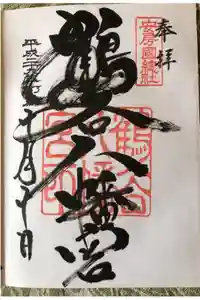 奉拝
安房國總社
鶴谷八幡宮
鶴谷
八幡
宮印
平成二十
月十日